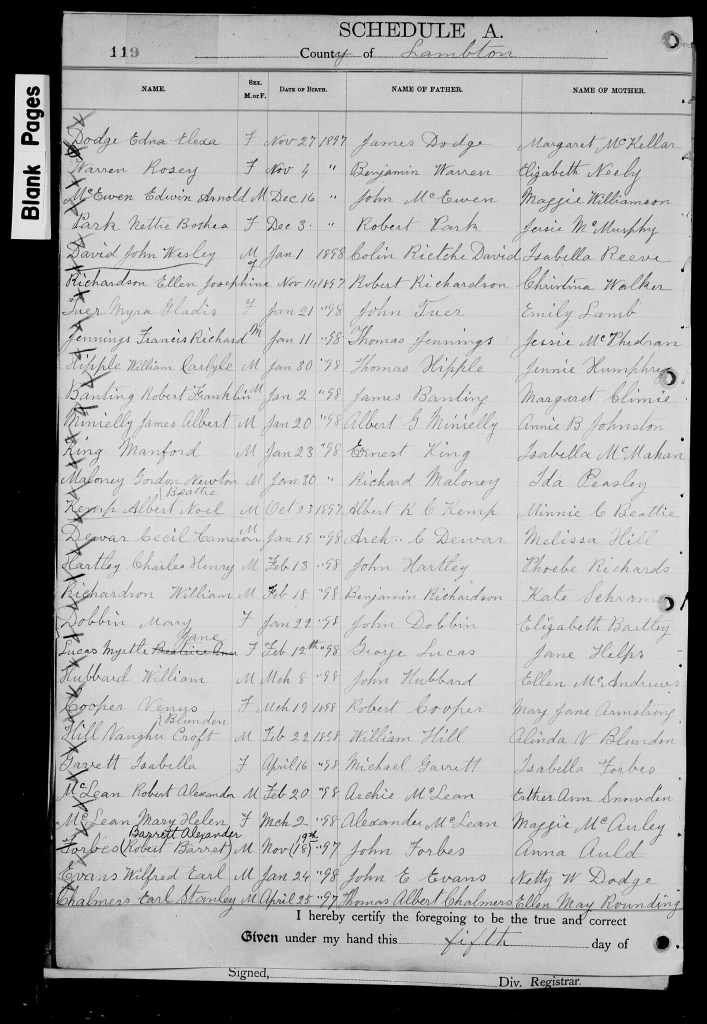 SCHEDULE A.
119 County of Lambton
Blank Pages
NAME. SEX. M. or F. DATE OF BIRTH. NAME OF FATHER. NAME OF MOTHER.
Dodge Edna Elexa F Nov 27 1897 James Dodge Margaret McKellar
Warren Rosey F Nov 4 " Benjamin Warren Elizabeth Neely
McEwen Edwin Arnold M Dec 16 " John McEwen Maggie Williamson
Park Nettie Boshea F Dec 3 " Robert Park Jessie McMurphy
David John Wesley M Jan 1 1898 Colin Rietche David Isabella Reeve
Richardson Ellen Josephine F Nov 14 1897 Robert Richardson Christina Walker
Tuer Myra Gladis F Jan 21 "98 John Tuer Emily Lamb
Jennings Francis Richard M Jan 11 "98 Thomas Jennings Jessie McPhedran
Hipple William Carlyle M Jan 30 "98 Thomas Hipple Jennie Humphrey
Banting Robert Franklin M Jan 2 "98 James Banting Margaret Climie
Minielly James Albert M Jan 20 "98 Albert G Minielly Annie B Johnston
King Manford M Jan 23 "98 Ernest King Isabella McMahan
Maloney Gordon Newton M Jan 30 " Richard Maloney Ida Peasley
Beattie
Kemp Albert Noel M Oct 23 1897 Albert K C Kemp Minnie C Beattie
Dewar Cecil Cameron M Jan 19 "98 Arch. C Dewar Melissa Hill
Hartley Charles Henry M Feb 13 "98 John Hartley Phoebe Richards
Richardson William M Feb 18 "98 Benjamin Richardson Kate Schram
Dobbin Mary F Jan 22 "98 John Dobbin Elizabeth Bartley
Jane
Lucas Myrtle Beatrice Ann F Feb 12th "98 George Lucas Jane Helps
Hubbard William M Mch 8 "98 John Hubbard Ellen McAndrews
Cooper Venys F Mch 19 1898 Robert Cooper Mary Jane Armstrong
Blunden
Hill Vaughn Croft M Feb 22 1898 William Hill Alinda V Blunden
Garett Isabella F April 16 "98 Michael Garrett Isabella Forbes
McLean Robert Alexander M Feb 20 "98 Archie McLean Esther Ann Snowden
McLean Mary Helen F Mch 2 "98 Alexander McLean Maggie McAuley
Barrett Alexander
Forbes (Robert Barret) M Nov (18) "97 John Forbes Anna Auld
Evans Wilfred Earl M Jan 24 "98 John E. Evans Netty W Dodge
Chalmers Earl Stanley M April 25 "97 Thomas Albert Chalmers Ellen May Rounding
I hereby certify the foregoing to be the true and correct
Given under my hand this fifth day of
Signed, Div. Registrar.